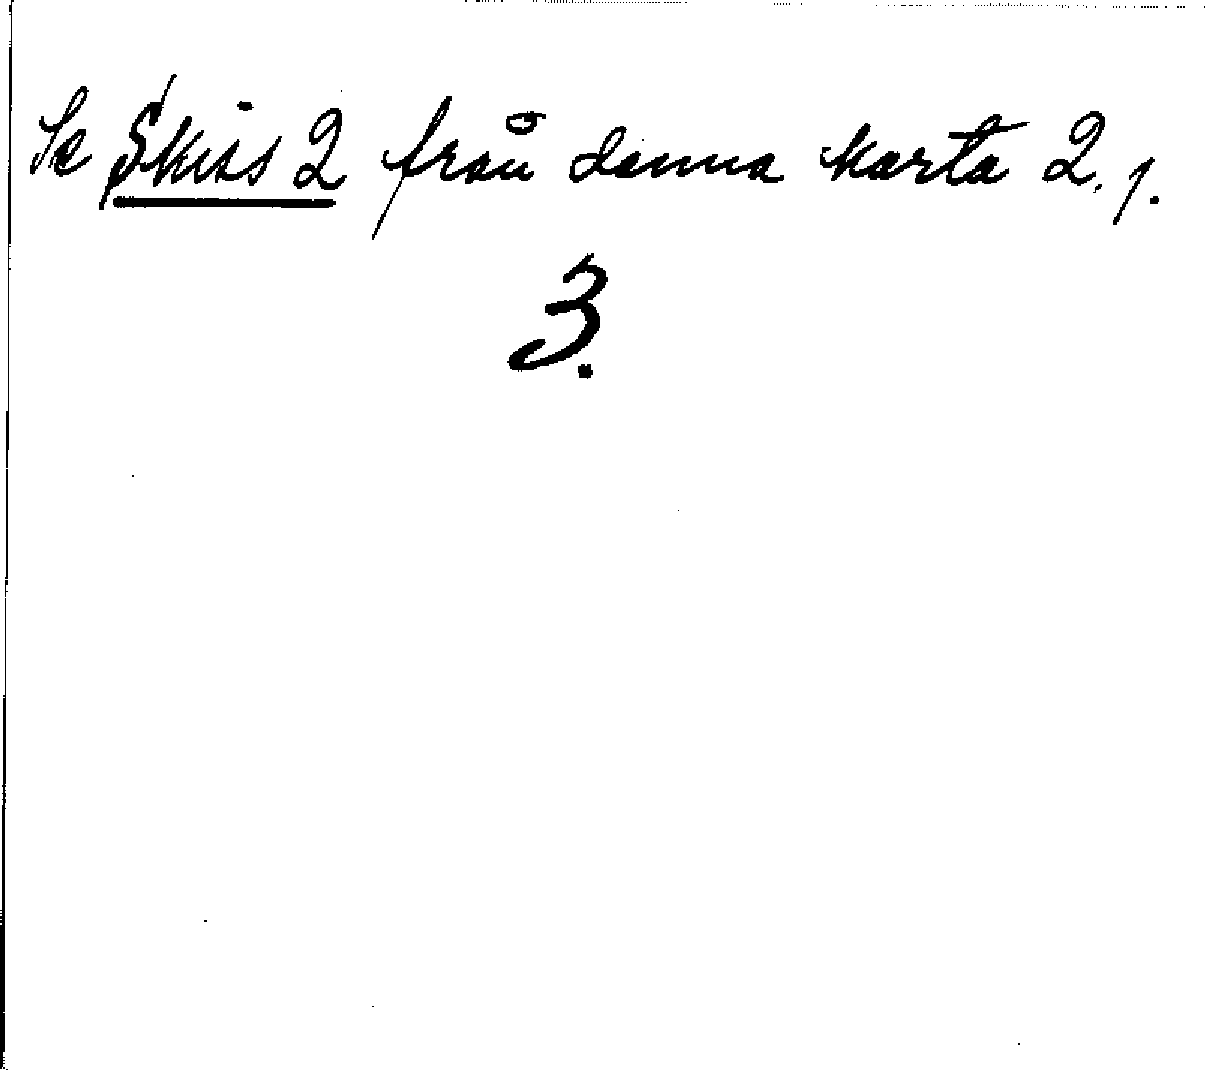 Se Skiss 2 från denna karta 2. p.
3.